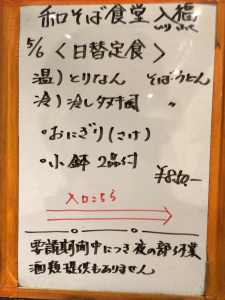 和そば食堂 入福
いり ふく
5/6 〈日替定食〉
温) とりなん そば・うどん
冷) 冷し 〃
・おにぎり(さけ)
・小鉢 2品付
¥850-
入口こちら
要請期間中につき 夜の部休業
酒類提供もありません